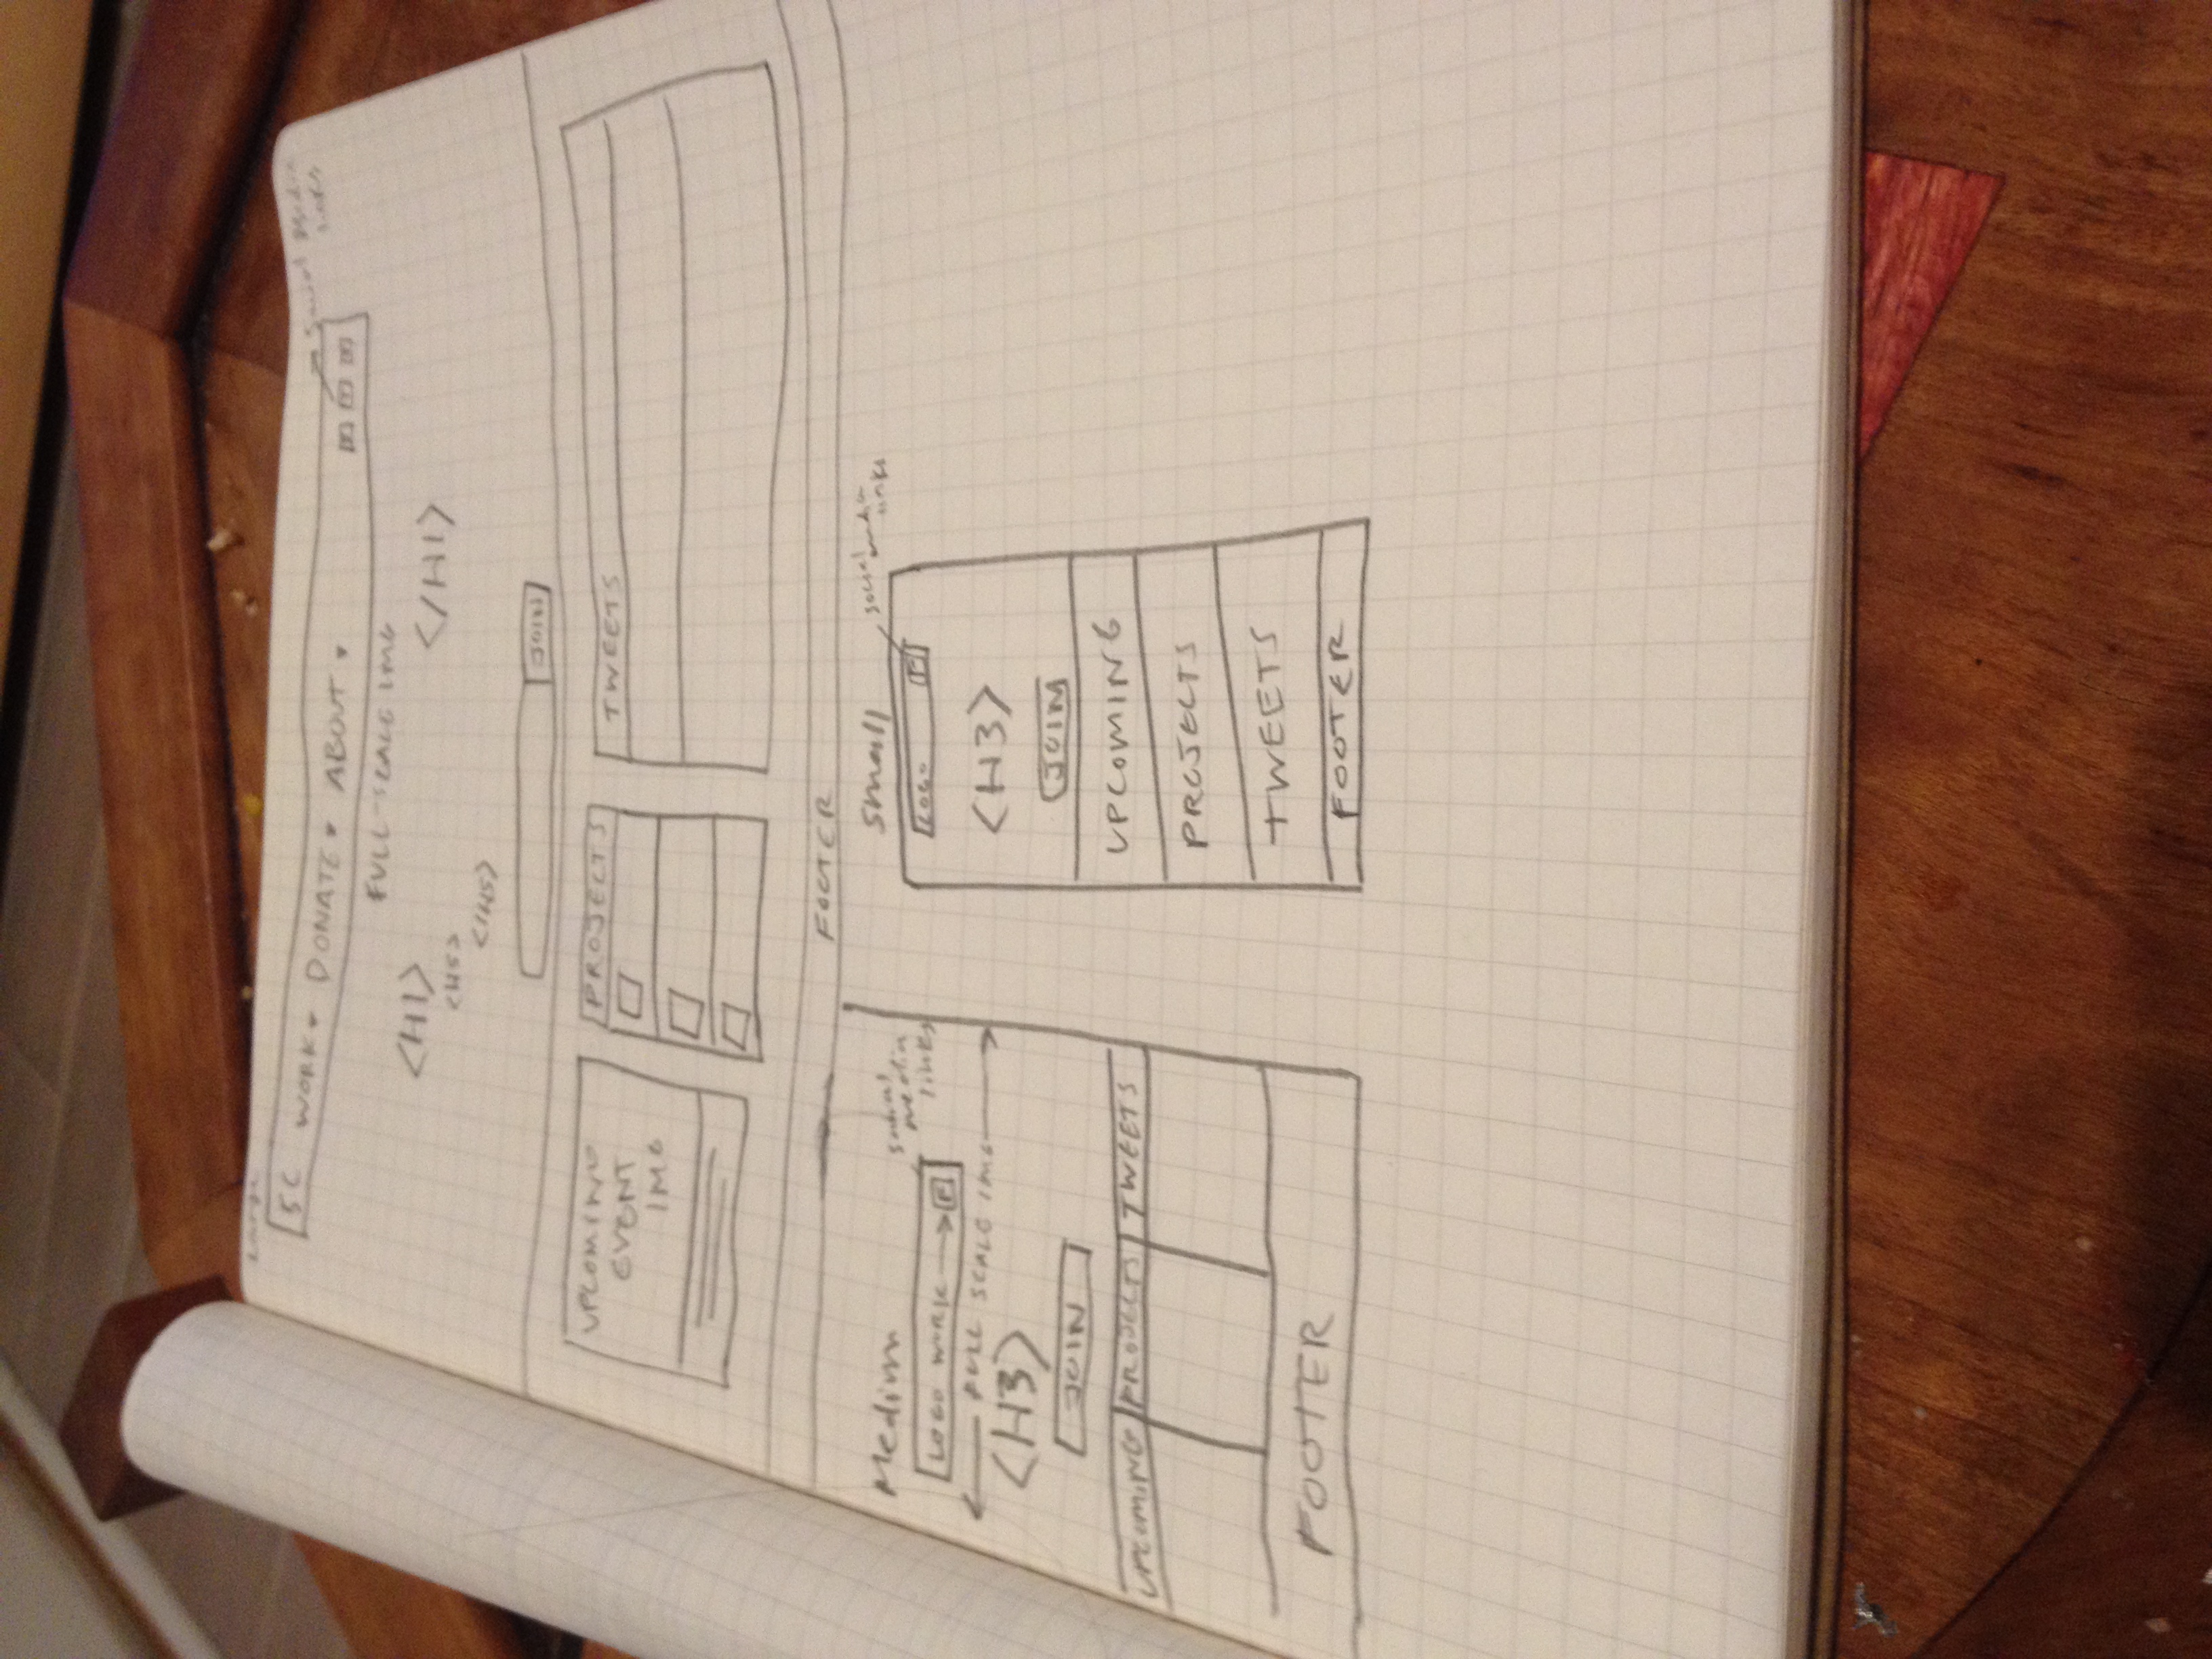 Large
SC WORK DONATE ABOUT
Social Media
links
FULL-SCALE IMG
<H1> </H1>
<H5>
</H5>
JOIN
UPCOMING
EVENT
IMG
PROJECTS
TWEETS
FOOTER
Medium
social
media
links
LOGO WORK F
FULL SCALE IMG
<H3>
JOIN
UPCOMING PROJECTS TWEETS
FOOTER
small
social media
links
LOGO F
<H3>
JOIN
UPCOMING
PROJECTS
TWEETS
FOOTER